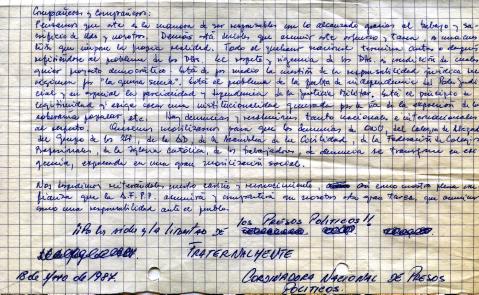 Compañeras y compañeros:
Pensamos que esta es la manera de ser responsables con lo alcanzado gracias al trabajo y sa-
crificio de Uds y nosotros. Demás está decirles que asumir este esfuerzo y tarea es una cues-
tión que impone la propia realidad. Todo el quehacer nacional termina antes o después
refiriéndose al problema de los DD.HH. El respeto y vigencia de los DD.HH. es condición de cual-
quier proyecto democrático. Está de por medio la cuestión de la responsabilidad jurídica
"la guerra sucia". Está el problema de la falta de independencia del Poder Judi-
cial y en especial la parcialidad y dependencia de la justicia Militar. Está el principio de
legitimidad que exige crear una institucionalidad generada por la vía de la expresión de la
soberanía popular, etc. Hay denuncias y resoluciones tanto nacionales e internacionales
al respecto. Queremos movilizarnos para que las denuncias de ONU, del Colegio de Abogados,
del Grupo de los de la AD, de la Asamblea de la Civilidad, de la Federación de Colegios
Profesionales, de la Iglesia Católica, de los trabajadores, de denuncia se transforme en exi-
gencia, expresada en una gran movilización social.
Nos despedimos reiterándoles mucho cariño y reconocimiento, así como nuestra plena con-
fianza que la A.F.P.P. asumirá y compartirá con nosotros esta gran tarea, que asumimos
como una responsabilidad ante el pueblo.
¡¡Por la vida y la libertad de los Presos Políticos!!
FRATERNALMENTE
18 de 1987.
COORDINADORA NACIONAL DE PRESOS
POLÍTICOS.